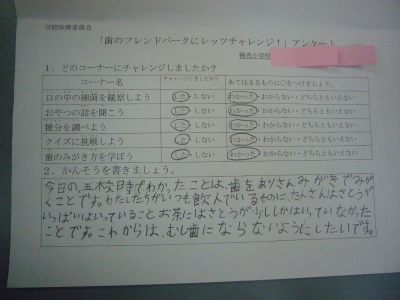 学校保健委員会
「歯のフレンドパークにレッツチャレンジ！」アンケート
小学校
1．どのコーナーにチャレンジしましたか？
コーナー名 チャレンジしましたか？ あてはまるものに○をつけましょう。
口の中の細菌を観察しよう した・しない わかった・わからない・どちらともいえない
おやつの話を聞こう した・しない わかった・わからない・どちらともいえない
糖分を調べよう した・しない わかった・わからない・どちらともいえない
クイズに挑戦しよう した・しない わかった・わからない・どちらともいえない
歯のみがき方を学ぼう した・しない わかった・わからない・どちらともいえない
2．かんそうを書きましょう。
今日の、五木交目時でわかったことは、歯をありさんみがきでみが
くことです。わたしたちがいつも飲んでいるものに、たくさんはさとうが
いっぱいはいっていること、お茶にはさとうが少ししかはいっていなかった
ことです。これからは、むし歯にならないようにしたいです。